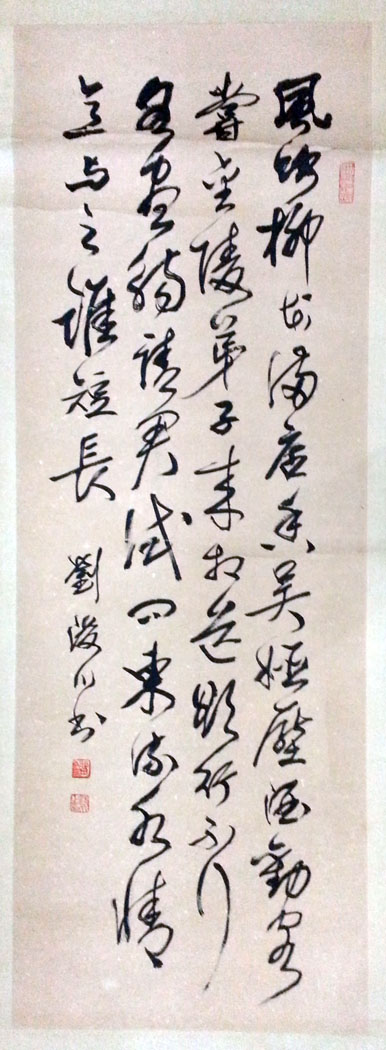 風吹柳花滿店香吳姬壓酒勸客
嘗金陵弟子來相送欲行不行
各盡觴請君試問東流水情
意与之誰短長
劉川书